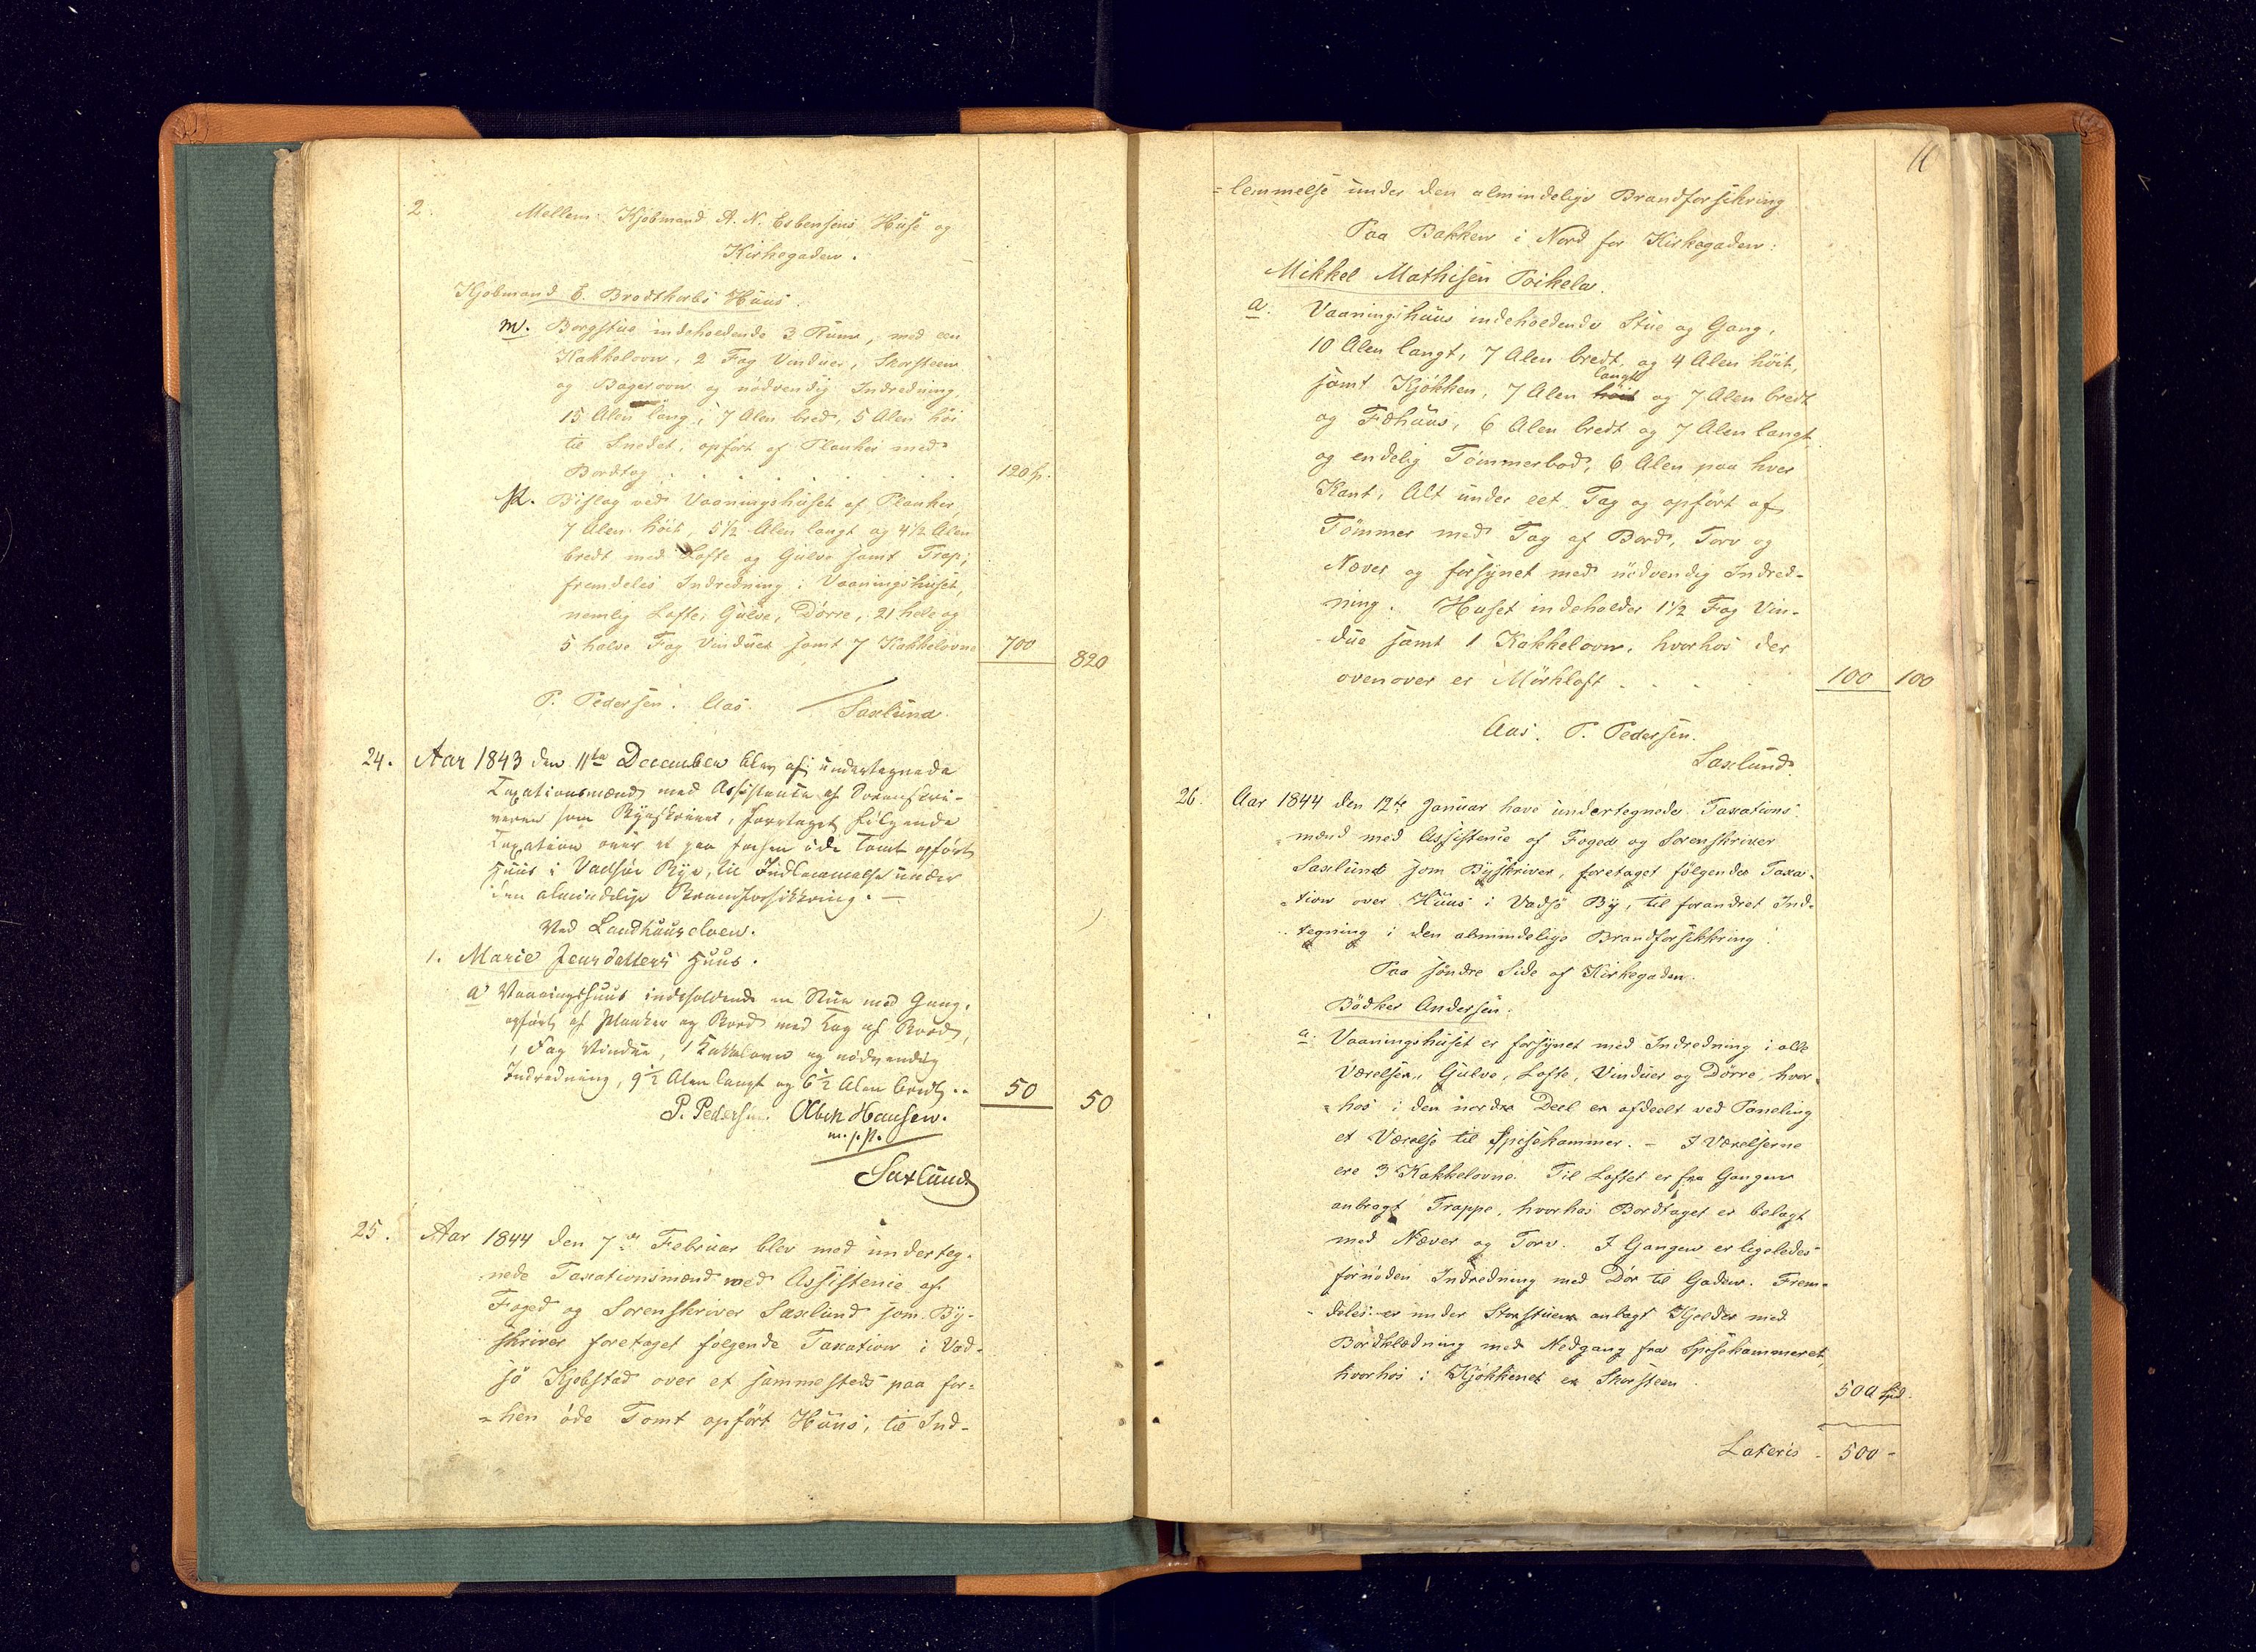 2. Mellem Kjöbmand A. N. Esbensens Huse og
Kirkegaden.
Kjöbmand E. Brodtkorbs Huus.
m. Borgstue indeholdende 3 Rum, med een
Kakkelovn, 2 Fag Vinduer, Skorsteen
og Bagerovn og nödvendig Indredning,
15 Alen lang, 7 Alen bred, 5 Alen höi
til Snedet, opfört af Planker med
Bordtag . . . . . . 120 Sp.
n. Bislag ved Vaaningshuset af Planker,
7 Alen höit, 5 1/2 Alen langt og 4 1/2 Alen
bredt med Lofte og Gulve samt Trap;
fremdeles Indredning i Vaaningshuset,
nemlig Lofte, Gulve, Dörre, 21 hele og
5 halve Fag Vinduer samt 7 Kakkelovne 700 820
P. Pedersen. Aas. Saxlund.
24. Aar 1843 den 11te December blev af undertegnede
Taxationsmænd med Assistence af Sorenskri-
veren som Byeskriver, foretaget fölgende
Taxation over et paa forhen öde Tomt opfört
Huus i Vadsöe Bye, til Indlemmelse under
den almindelige Brandforsikkring. —
Ved Landhuuselven.
1. Marie Jensdatters Huus.
a Vaaningshuus indeholdende en Stue med Gang,
opfört af Planker og Bord med Tag af Bord,
1 Fag Vindue, 1 Kakkelovn og nödvendig
Indredning, 9 1/2 Alen langt og 6 1/2 Alen bredt .. 50 50
P. Pedersen. Abr. Hansen.
m. f. P.
Saxlund
25. Aar 1844 den 7de Februar blev med underteg-
nede Taxationsmænd med Assistence af
Foged og Sorenskriver Saxlund som By-
skriver foretaget fölgende Taxation i Vad-
sö Kjöbstad over et sammesteds paa for-
hen öde Tomt opfört Huus, til Ind-
10
lemmelse under den almindelige Brandforsikring
Paa Bakken i Nord for Kirkegaden:
Mikkel Mathisen Poikela.
a. Vaaningshuus indeholdende Stue og Gang,
10 Alen langt, 7 Alen bredt og 4 Alen höit,
langt
samt Kjökken, 7 Alen höit og 7 Alen bredt
og Föhuus, 6 Alen bredt og 7 Alen langt
og endelig Tömmerbod, 6 Alen paa hver
Kant, Alt under eet Tag og opfört af
Tömmer med Tag af Bord, Torv og
Næver og forsynet med nödvendig Indred-
ning. Huset indeholder 1 1/2 Fag Vin-
due samt 1 Kakkelovn, hvorhos der
ovenover er Mörkloft . . . 100 100
Aas. P. Pedersen.
Saxlund.
26. Aar 1844 den 12te Januar have undertegnede Taxations-
mænd med Assistence af Foged og Sorenskriver
Saxlund som Byskriver, foretaget fölgende Taxa-
tion over Huus i Vadsö By, til forandret Ind-
tegning i den almindelige Brandforsikkring:
Paa söndre Side af Kirkegaden.
Bödker Andersen.
a. Vaaningshuset er forsynet med Indredning i alle
Værelser, Gulve, Lofte, Vinduer og Dörre, hvor-
hos i den nordre Deel er afdeelt ved Paneling
et Værelse til Spisekammer. – I Værelserne
ere 3 Kakkelovne. Til Loftet er fra Gangen
anbragt Trappe, hvorhos Bordtaget er belagt
med Næver og Torv. I Gangen er ligeledes
fornöden Indredning med Dör til Gaden. Frem-
deles er under Storstuen anlagt Kjelder med
Bordklædning med Nedgang fra Spisekammeret,
hvorhos i Kjökkenet er Skorsteen . 500 Spd.
Lateris . 500 –